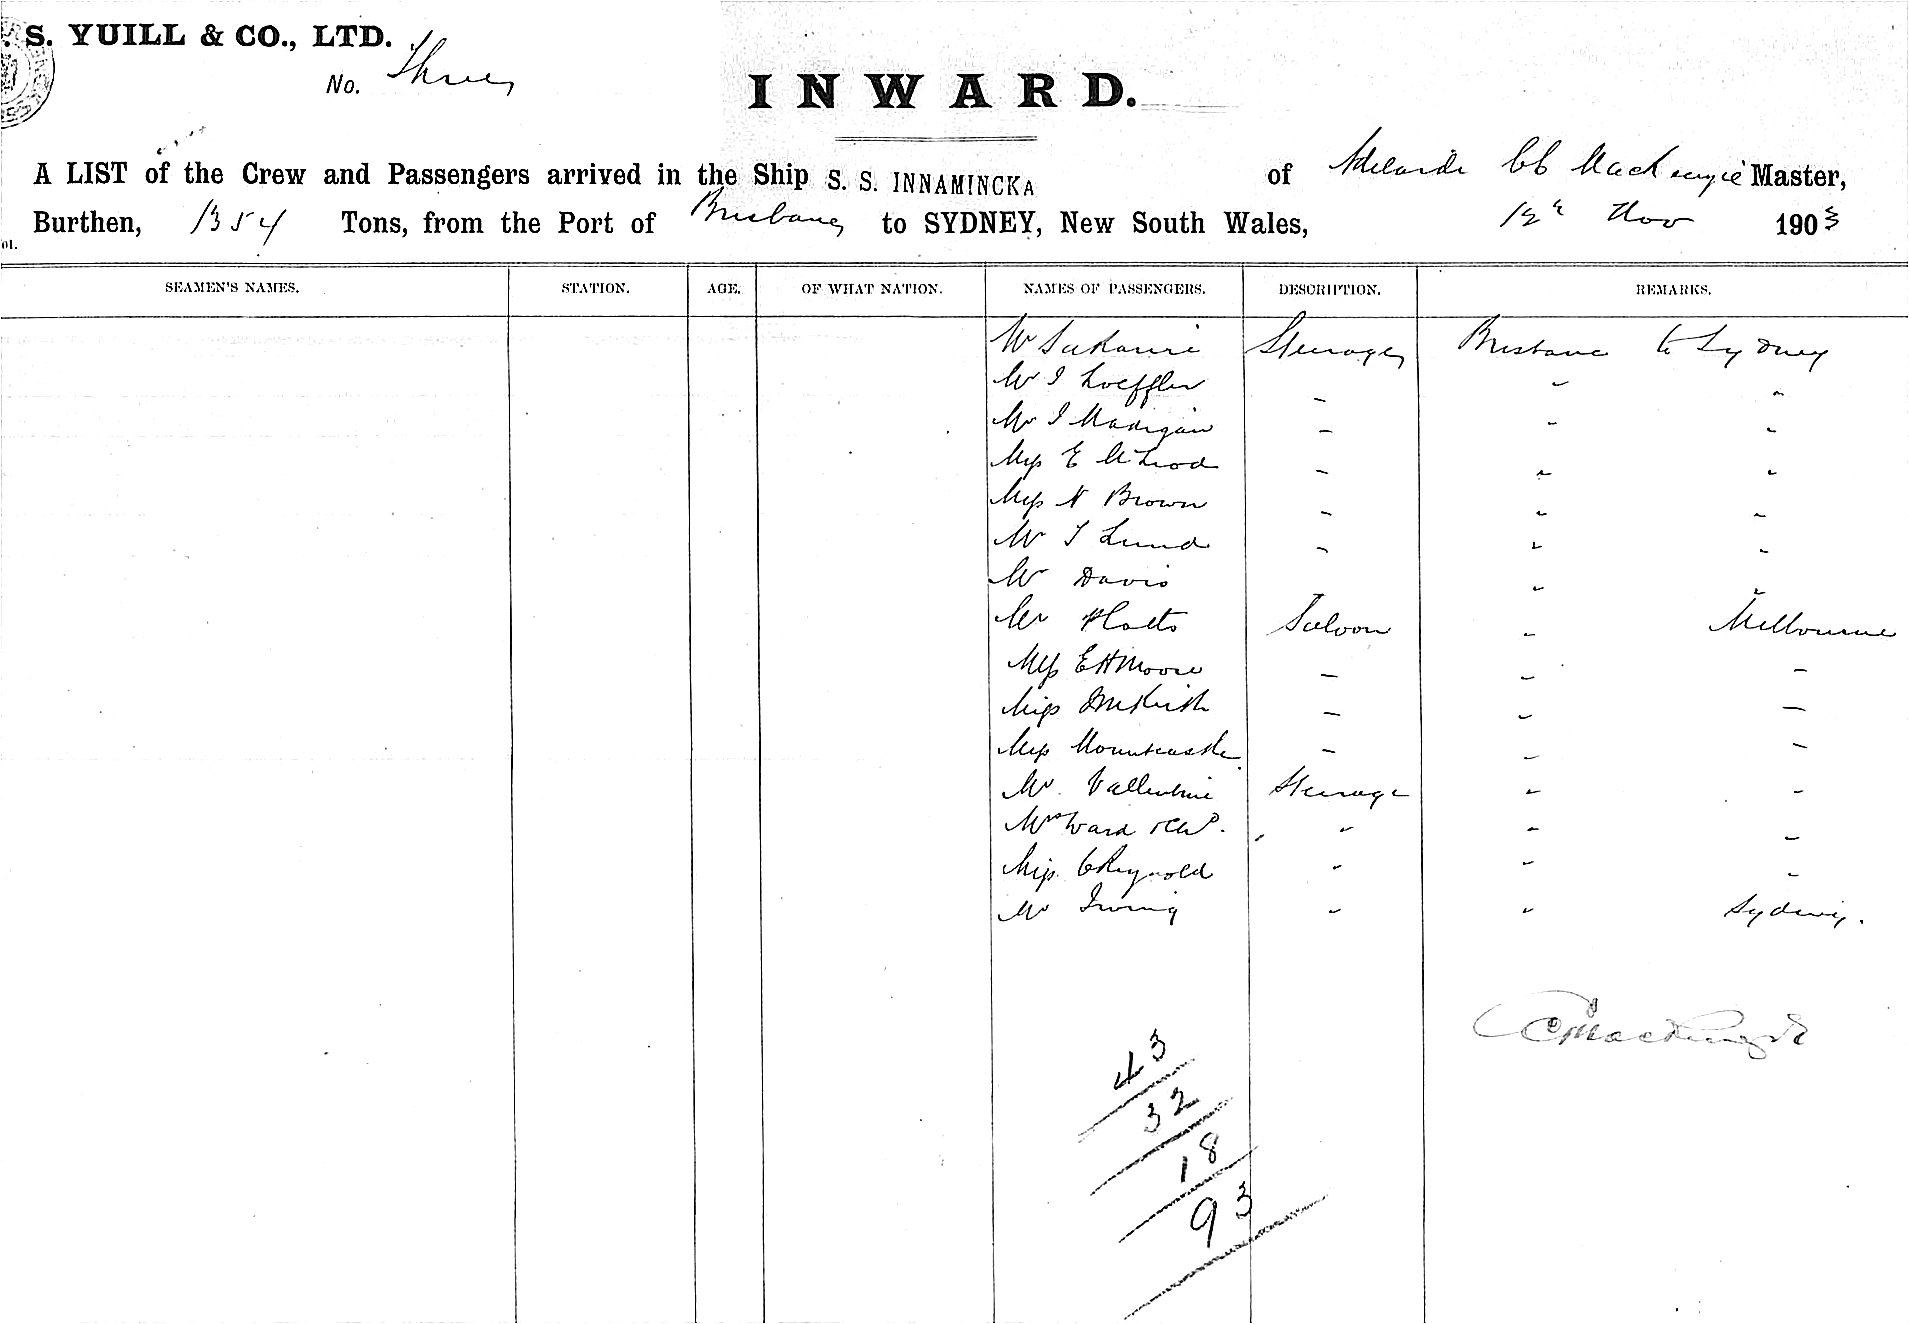 S. YUILL & CO., LTD.
No. Three
INWARD.
A LIST of the Crew and Passengers arrived in the Ship S. S. INNAMINCKA of Adelaide CC MacKenzie Master,
Burthen, 1354 Tons, from the Port of Brisbane to SYDNEY, New South Wales, 12th Nov 1903
SEAMEN'S NAMES. STATION. AGE. OF WHAT NATION. NAMES OF PASSENGERS. DESCRIPTION. REMARKS.
Mr Steerage Brisbane to Sydney
Mr I Loeffler " "
Mr I Madigan - " "
Miss E McLeod - " "
Miss N Brown - " "
Mr T Lund - " "
Mr Davis " "
Mr Saloon " Melbourne
Miss E H Moore - " -
Miss - " -
Miss Mountcastle - " -
Mr Vallentine Steerage " -
Mrs Ward " " -
Miss C Reynold " " -
Mr Irving " " Sydney.
CC MacKenzie
43
32
18
93